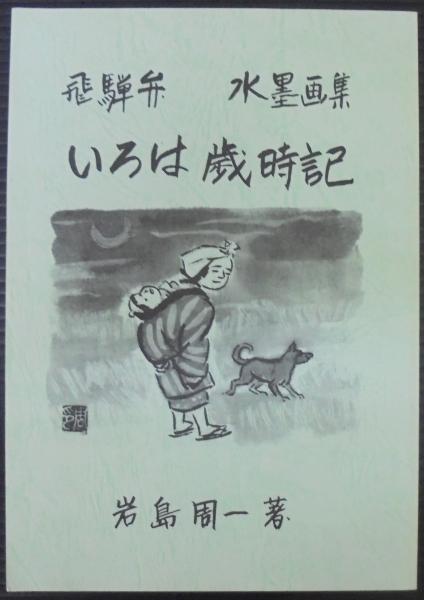 飛騨弁 水墨画集
いろは歳時記
岩島周一著